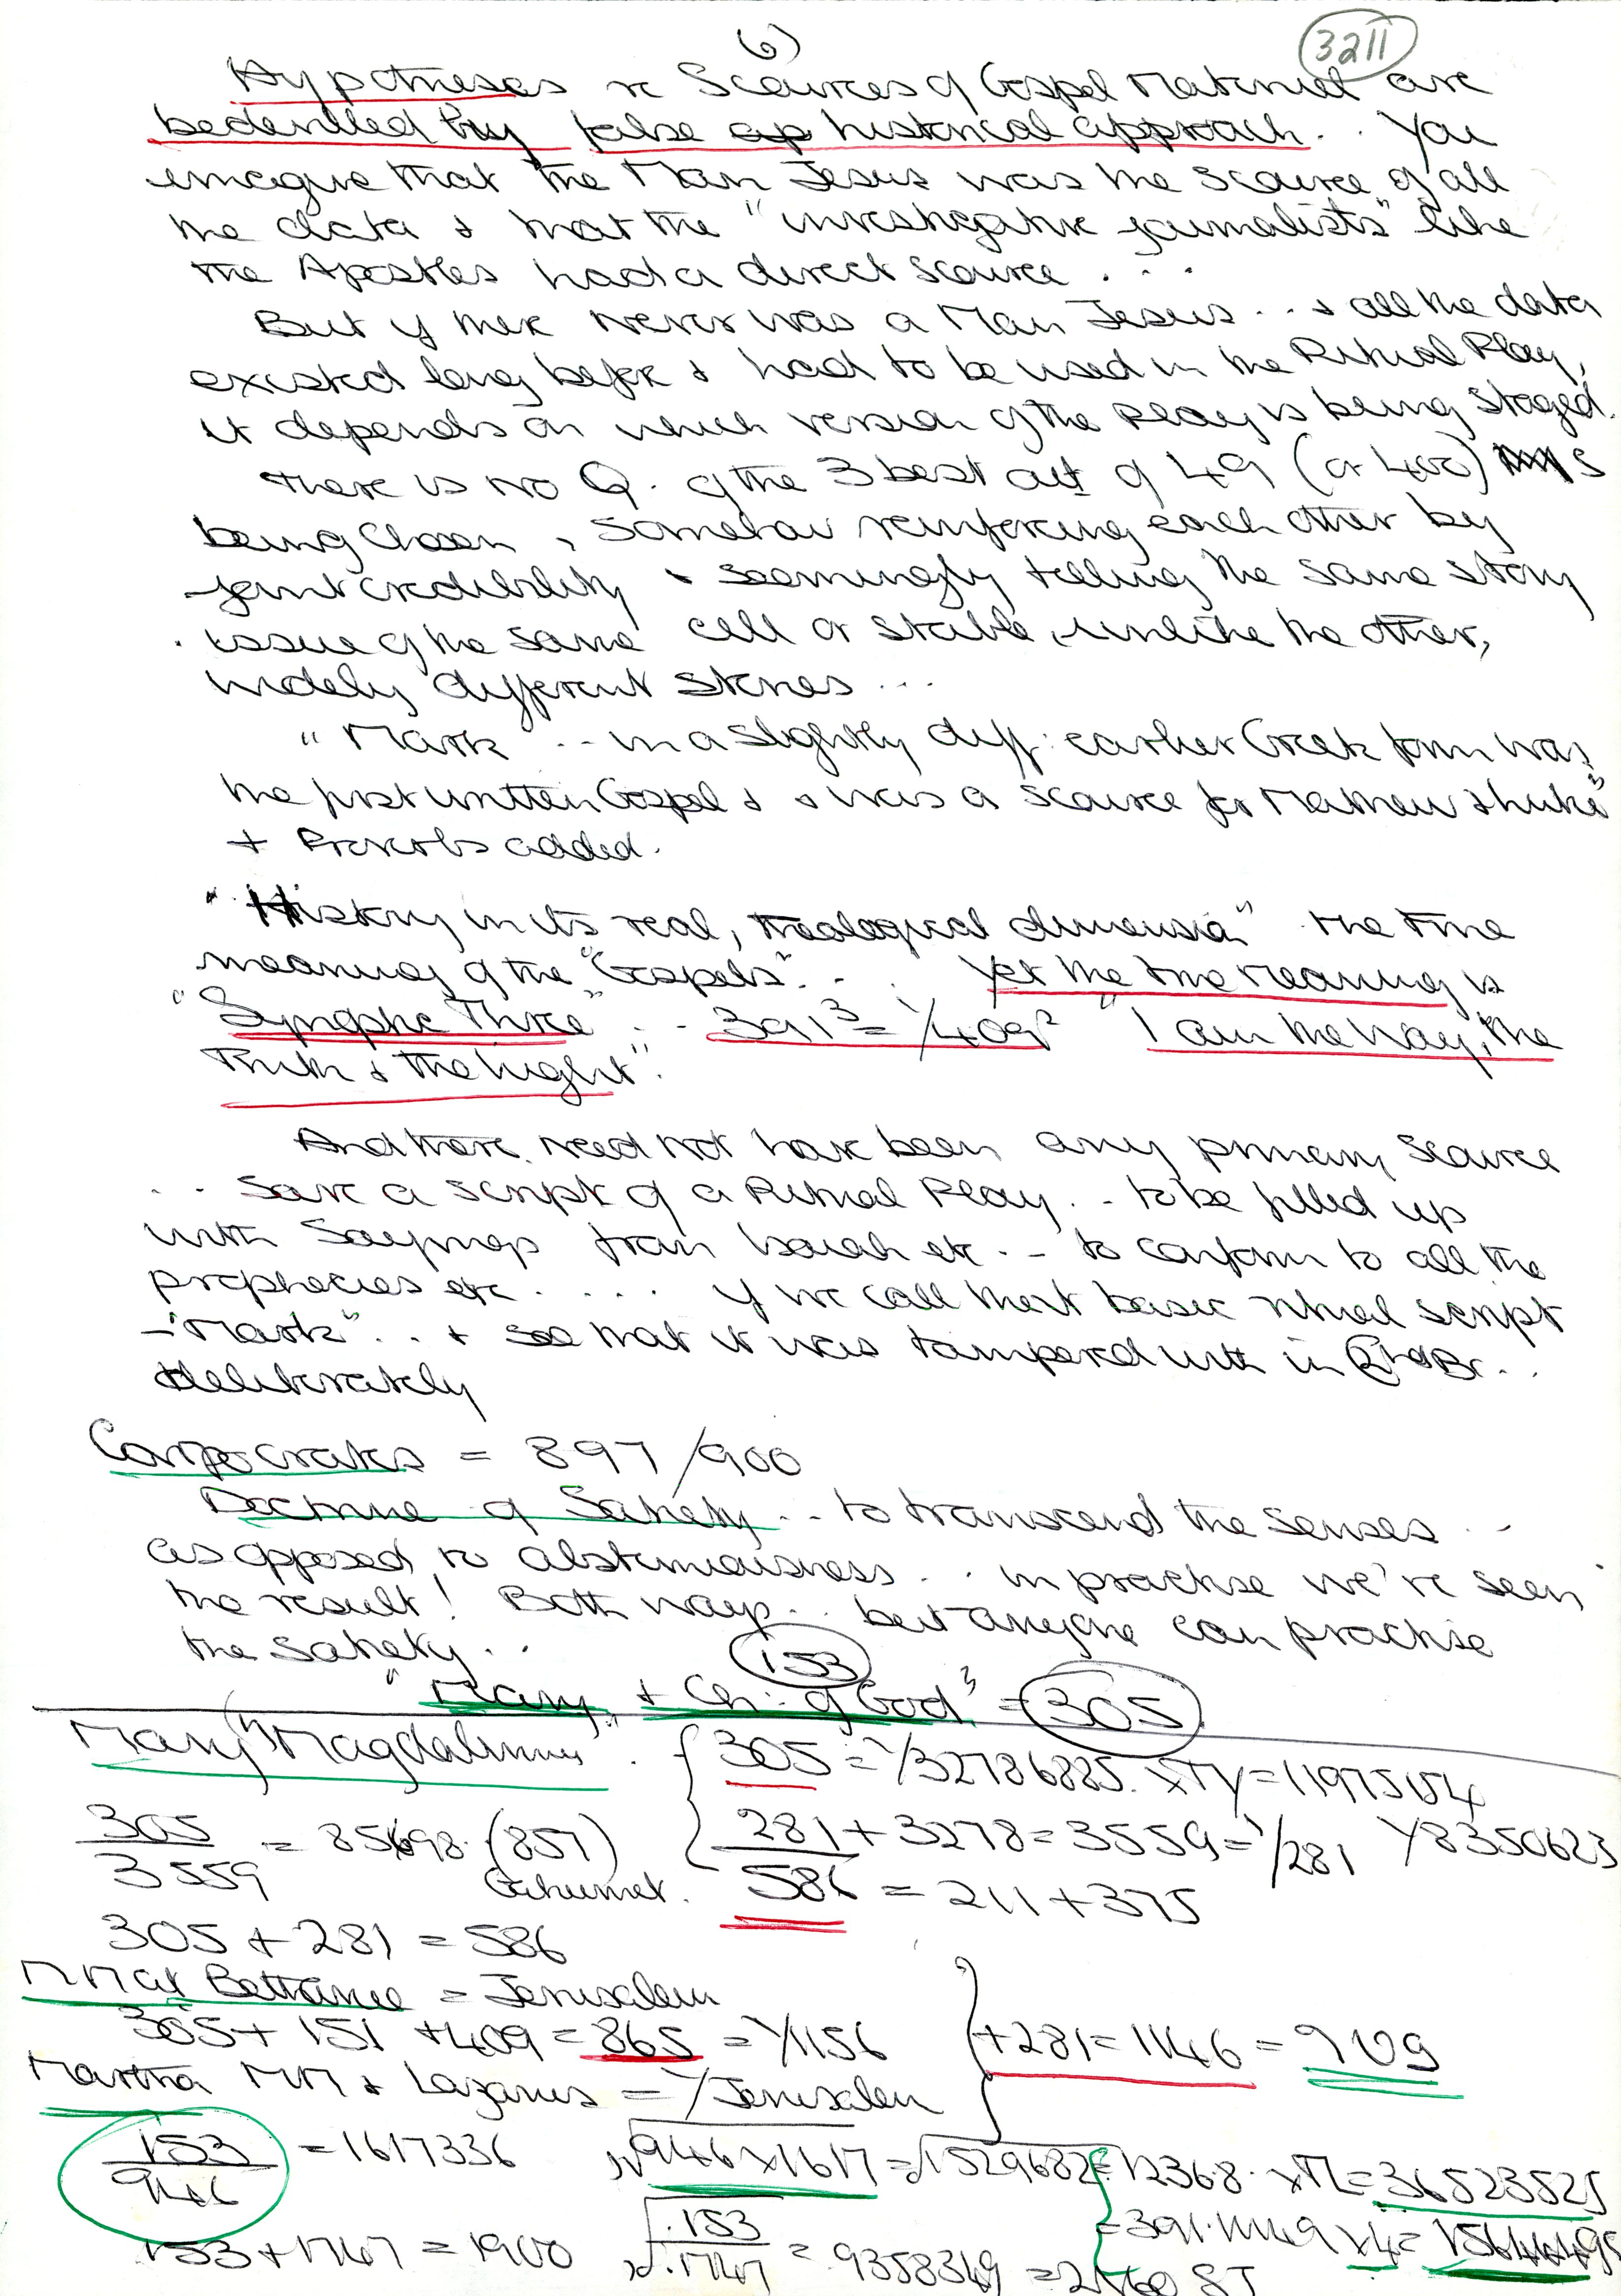 (6)
3211
Hypotheses re Scources of Gospel Material are
bedevilled by false ap historical approach. . You
imagine that the Man Jesus was the scource of all
the data & that the "investigative journalists" like
the Apostles had a direct scource . . .
But if there never was a Man Jesus . . & all the data
existed long before & had to be used in the Ritual Play,
it depends on which version of the Play is being staged.
There is no Q. of the 3 best out of 49 (or 400) s
being chosen, somehow reinforcing each other by
joint credibility & seemingly telling the same story
. issue of the same cell or stable, unlike the other,
widely different stories ...
"Mark" .. in a slightly diff: earlier Greek form was
the first written Gospel & & was a scource for Mathew & Luke"
+ Proverbs added.
"History in its real, theological dimension" the true
meaning of the "Gospels". . . Yet the true meaning is
"Synoptic Three" . . 391³ = 1/409² "I am the Way, the
Truth & the Light".
And there need not have been any primary scource
. . Save a script of a Ritual Play . . to be filled up
with Sayings from Isaiah etc . . to conform to all the
prophecies etc . . . . if we call that basic ritual script
- "Mark" . . & see that it was tampered with in
deliberately
Carpocrates = 897/900
Doctrine of Satiety . . to transcend the senses . .
as opposed to abstemiousness . . in practise we've seen
the result! Both ways . . but anyone can practise
the satiety . .
153
"Mary, + Ch: of God" = 305
Mary "Magdalenne" . { 305 = 1/32786885. x Ty = 11975154
305/3559 = 85698. (857) 281 + 3278 = 3559 = 1/281 Y8350623
586 = 211 + 375
305 + 281 = 586
MM at Bethanee = Jerusalem
305 + 151 + 409 = 865 = 1/1156 } + 281 = 1146 = 909
Martha MM & Lazarus = 1/Jerusalem
153/946 = 1617336 √946 x 1617 = √1529682 = 12368. x TL = 36523525
= 391.1149 x 4 = 15644495
153 + 1747 = 1900 √.153/.1747 = 9358349 = 2160 ST